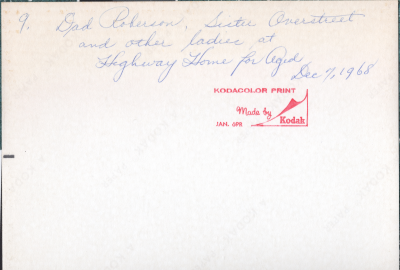 9. Dad Roberson, Sister Overstreet
and other ladies at
Highway Home for Aged
Dec 7, 1968
KODACOLOR PRINT
Made by
Kodak
JAN. 69R